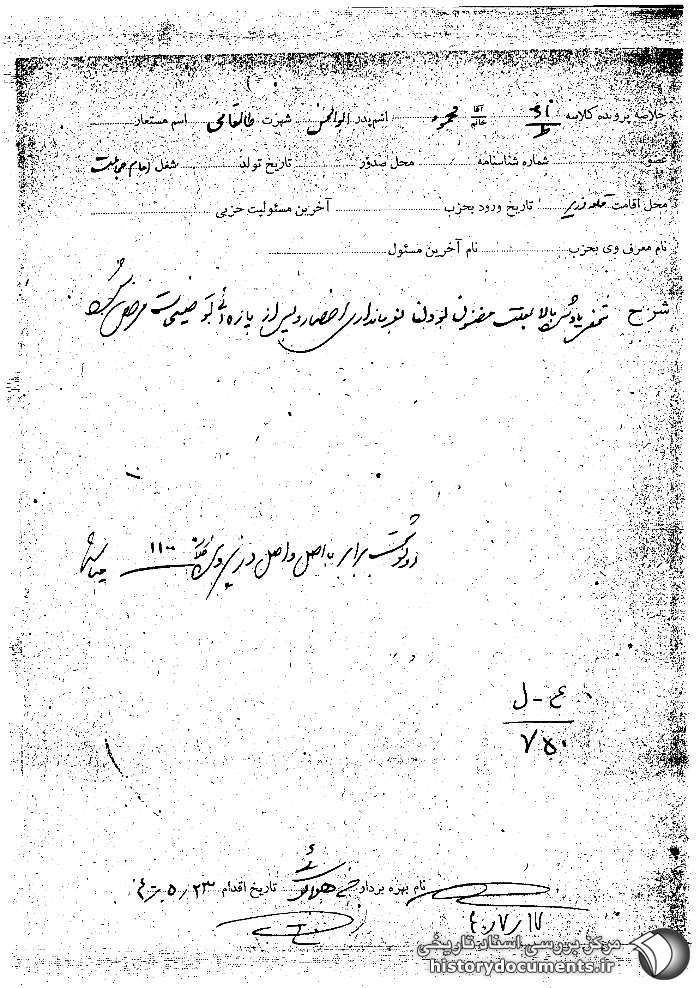 خلاصه پرونده کلاسه ط آقا خانم محمود اسم پدر ابوالحسن شهرت طالقانی اسم مستعار
عضو شماره شناسنامه محل صدور تاریخ تولد شغل امام جماعت
محل اقامت تاریخ ورود بحزب آخرین مسئولیت حزبی
نام معرف وی بحزب نام آخرین مسئول
شرح یاد شده بالا بعلت مظنون بودن بفرمانداری احضار و پس از پاره‌ای توضیحات مرخص گردید
رونوشت برابر با اصل و اصل در پرونده ۱۱۰۰
ع - ل
۷۵۰
نام بهره بردار تاریخ اقدام ۲۳ر۵ر۴۰
۱۷ر۷ر۴۰
مرکز بررسی اسناد تاریخی
historydocuments.ir